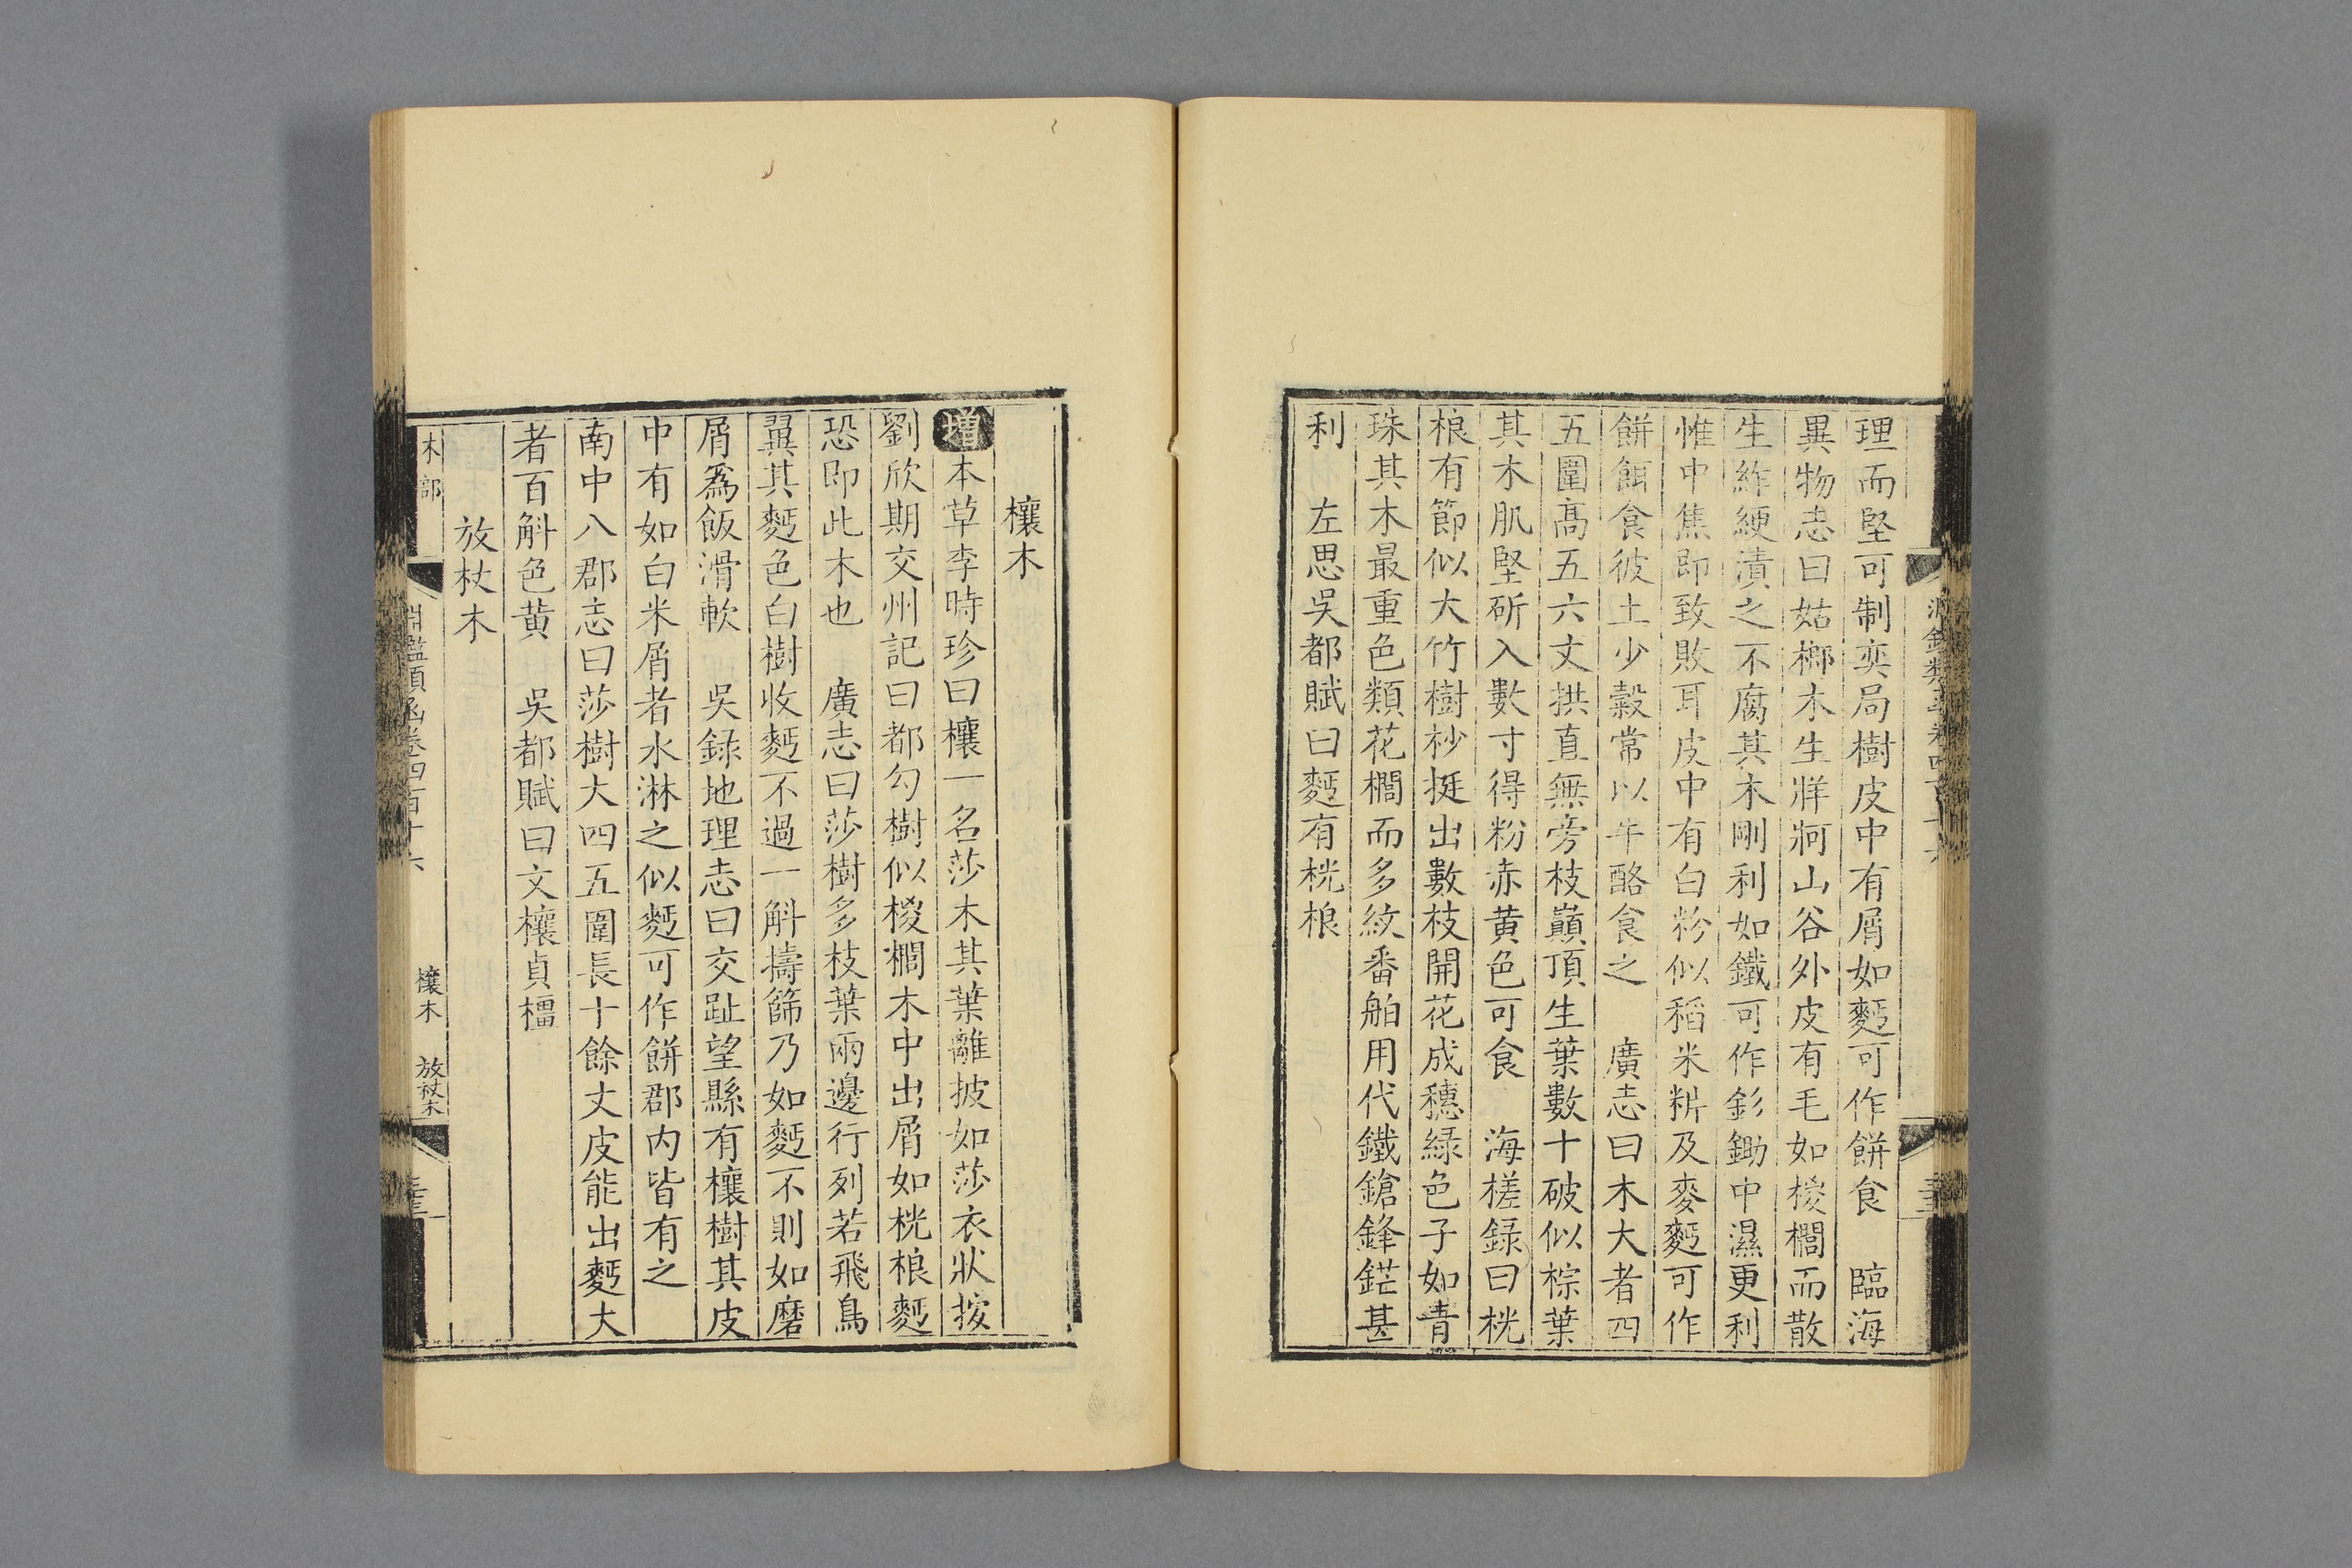 理而堅可制奕局樹皮中有屑如麪可作餅食　臨海
異物志曰姑榔木生牂牁山谷外皮有毛如椶櫚而散
生絍綆漬之不腐其木剛利如鐵可作釤鋤中濕更利
惟中焦即致敗耳皮中有白粉似稻米粃及麥麪可作
餅餌食彼土少穀常以牛酪食之　廣志曰木大者四
五圍高五六丈拱直無旁枝巔頂生葉數十破似棕葉
其木肌堅斫入數寸得粉赤黄色可食　海槎録曰桄
桹有節似大竹樹杪挺出數枝開花成穗緑色子如青
珠其木最重色類花櫚而多紋番舶用代鐵鎗鋒鋩甚
利　左思吳都賦曰麪有桄桹
欀木
增本草李時珍曰欀一名莎木其葉離披如莎衣狀按
劉欣期交州記曰都勾樹似椶櫚木中出屑如桄桹麪
恐即此木也　廣志曰莎樹多枝葉兩邊行列若飛鳥
翼其麪色白樹收麪不過一斛擣篩乃如麪不則如磨
屑爲飯滑軟　吳録地理志曰交趾望縣有欀樹其皮
中有如白米屑者水淋之似麪可作餅郡内皆有之
南中八郡志曰莎樹大四五圍長十餘丈皮能出麪大
者百斛色黄　吳都賦曰文欀貞橿
放杖木
木部
淵鑑類函卷四百十六
欀木　放杖木